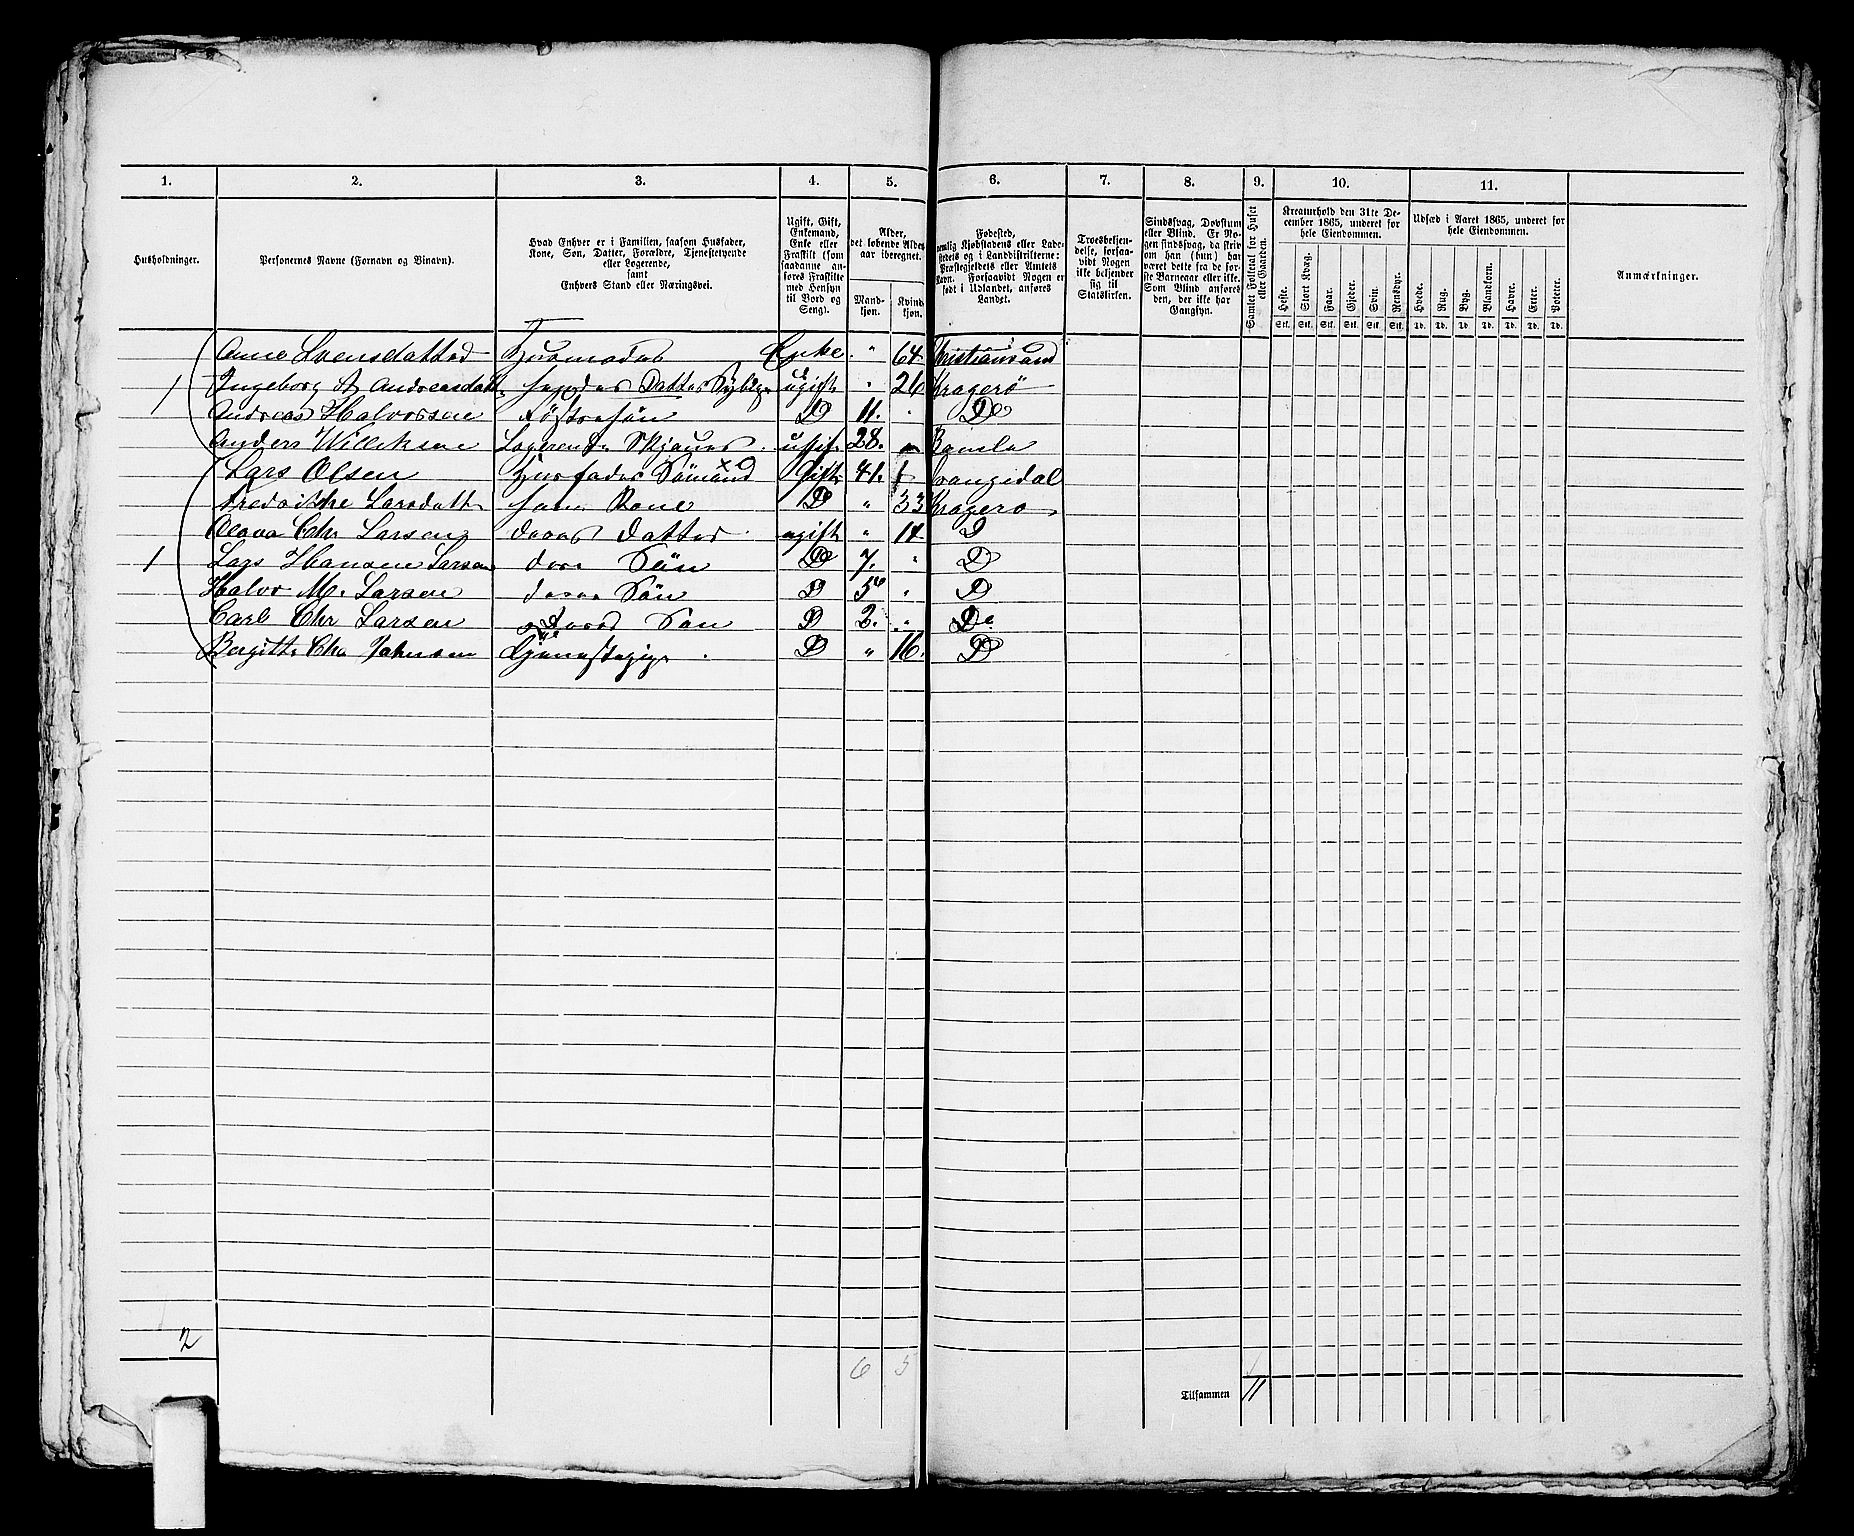 1. 2. 3. 4. 5. 6. 7. 8. 9. 10. 11.
Husholdninger.
Personernes Navne (Fornavn og Binavn).
Hvad Enhver er i Familien, saasom Husfader,
Kone, Søn, Datter, Forældre, Tjenestetyende
eller Logerende,
samt
Enhvers Stand eller Næringsvei.
Ugift, Gift,
Enkemand,
Enke eller
Fraskilt (som
saadanne an-
føres Fraskilte
med Hensyn
til Bord og
Seng).
Alder,
det løbende Alders-
aar iberegnet.
Mand-
kjøn.
Kvind-
kjøn.
Fødested,
nemlig Kjøbstadens eller Lade-
stedets og i Landdistrikterne:
Præstegjeldets eller Amtets
Navn. Forsaavidt Nogen er
født i Udlandet, anføres
Landet.
Troesbekjen-
delse, forsaa-
vidt Nogen
ikke bekjender
sig til
Statskirken.
Sindssvag, Døvstum
eller Blind. Er No-
gen sindssvag, da skriv
om han (hun) har
været dette fra de før-
ste Barneaar eller ikke.
Som Blind anføres
den, der ikke har
Gangsyn.
Samlet Folketal for Huset
eller Gaarden.
Kreaturhold den 31te De-
cember 1865, underet for
hele Eiendommen.
Heste. Stort Kvæg. Faar. Gjeder. Svin. Rensdyr.
Stk. Stk. Stk. Stk. Stk. Stk.
Udsæd i Aaret 1865, underet for
hele Eiendommen.
Hvede. Rug. Byg. Blandkorn. Havre. Erter. Poteter.
Td. Td. Td. Td. Td. Td. Td.
Anmærkninger.
Anne Svensdatter Husmoder Enke " 64 Christiansand
1 Ingeborg A Andreasdatt hendes Datter ugift " 26 Kragerö
Andreas Halvorsen Föstersön D 11. " Do
Anders Willeksen Logerende ugift 28. " Bamle
Lars Olsen Husfader Sömand Gift 41. Drangedal
Fredrikke Larsdatter hans Kone D " 33 Kragerö
Olava Chr Larsen deres Datter ugift " 14 D
1 Lars Hansen Larsen deres Sön Do 7. " D
Halvor M. Larsen deres Sön D 5 " D
Carl Chr Larsen deres Sön D 2. " Do
Bergitte Chr Johnsen Tjenestepige D " 16. D
2
6 5
Tilsammen 11